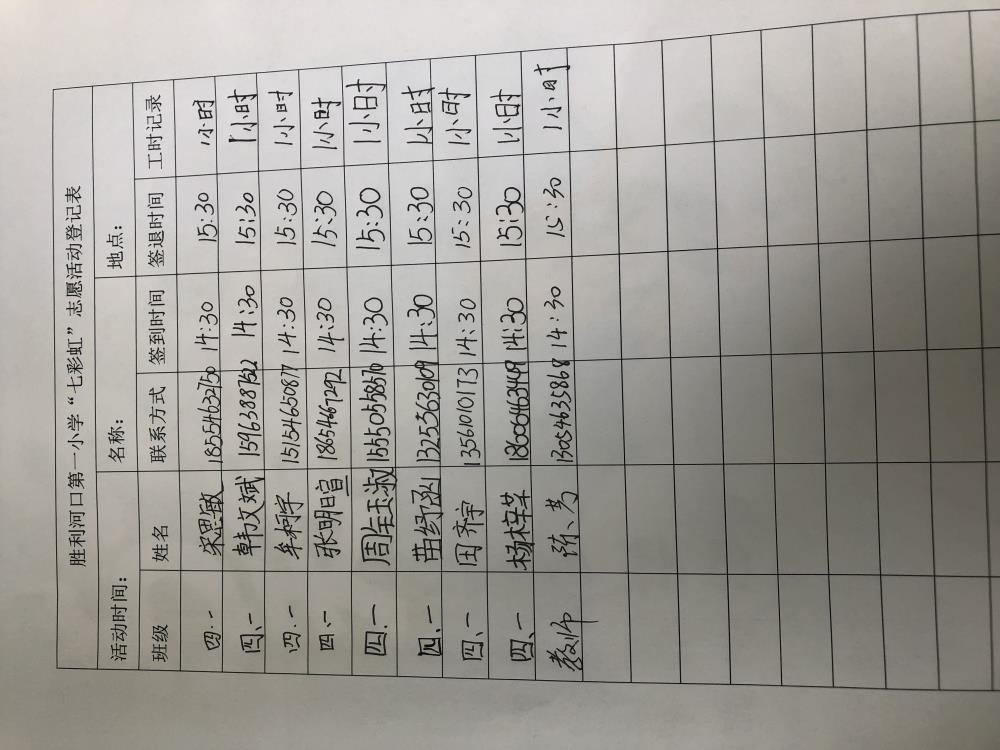 胜利河口第一小学“七彩虹”志愿活动登记表
活动时间: 名称: 地点:
班级 姓名 联系方式 签到时间 签退时间 工时记录
四.一 宋思敏 18554632750 14:30 15:30 1小时
四、一 韩文斌 15963887522 14:30 15:30 1小时
四.一 牟柯宇 15154650877 14:30 15:30 1小时
四.一 张明暄 18654667292 14:30 15:30 1小时
四.一 周钰淑 15550558570 14:30 15:30 1小时
四、一 苗纾涵 13253630109 14:30 15:30 1小时
四、一 田齐宇 13561010173 14:30 15:30 1小时
四、一 杨梓苹 18606463449 14:30 15:30 1小时
教师 13054635868 14:30 15:30 1小时